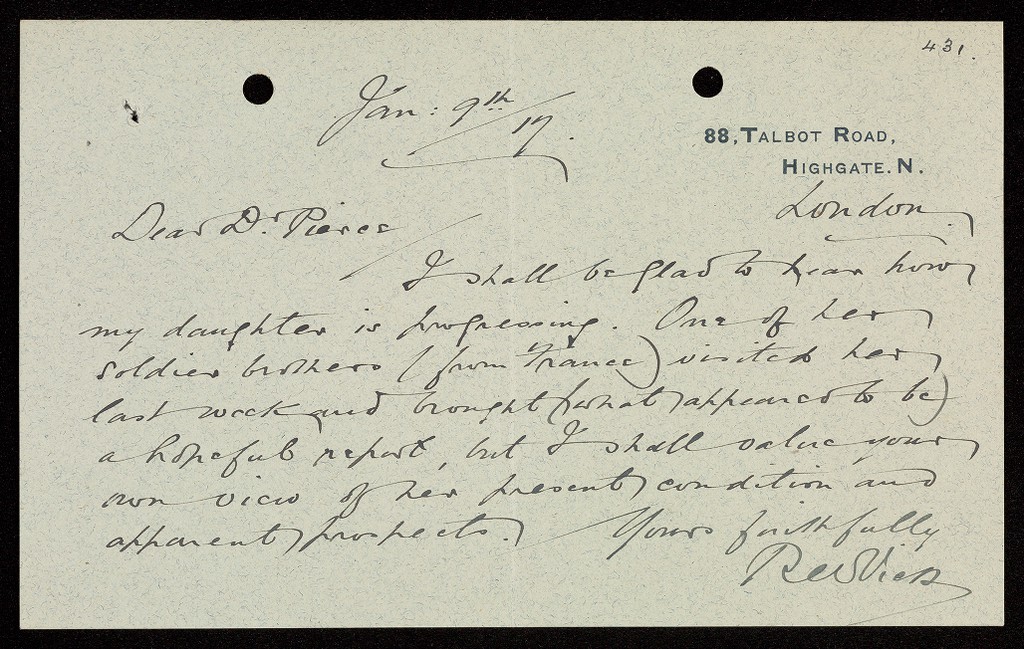 431.
Jan: 9th/17.
88, TALBOT ROAD,
HIGHGATE. N.
London
Dear Dr. Pierce
I shall be glad to hear how
my daughter is progressing. One of her
soldier brothers (from France) visited her
last week and brought (what appeared to be)
a hopeful report, but I shall value your
own view of her present condition and
apparent prospects.
Yours faithfully